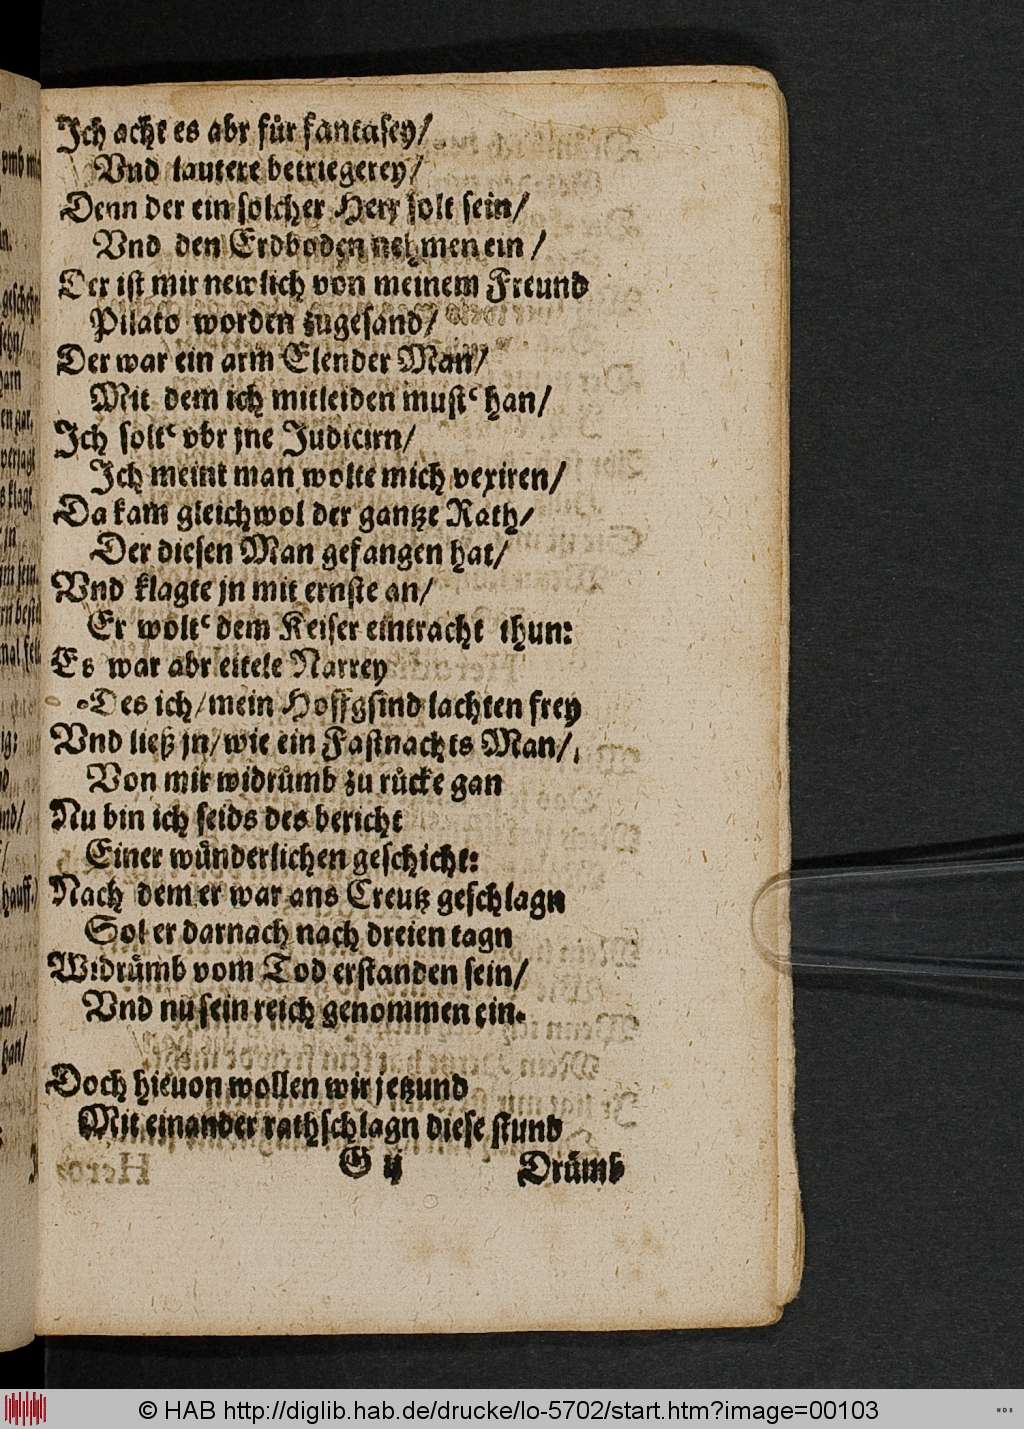 Ich acht es abr für fantasey/
Vnd lautere betriegerey/
Denn der ein solcher Herr solt sein/
Vnd den Erdboden nehmen ein/
Der ist mir newlich von meinem Freund
Pilato worden zugesand/
Der war ein arm Elender Man/
Mit dem ich mitleiden must' han/
Ich solt' vbr jne Judicirn/
Ich meint man wolte mich vexiren/
Da kam gleichwol der gantze Rath/
Der diesen Man gefangen hat/
Vnd klagte jn mit ernste an/
Er wolt' dem Keiser eintracht thun:
Es war abr eitele Narrey
Des ich/mein Hoffgsind lachten frey
Vnd ließ jn/wie ein Fastnachts Man/
Von mir widrůmb zu růcke gan
Nu bin ich seids des bericht
Einer wůnderlichen geschicht:
Nach dem er war ans Creutz geschlagn
Sol er darnach nach dreien tagn
Widrůmb vom Tod erstanden sein/
Vnd nu sein reich genommen ein.
Doch hieuon wollen wir jetzund
Mit einander rathschlagn diese stund
G ij Drůmb
© HAB http://diglib.hab.de/drucke/lo-5702/start.htm?image=00103